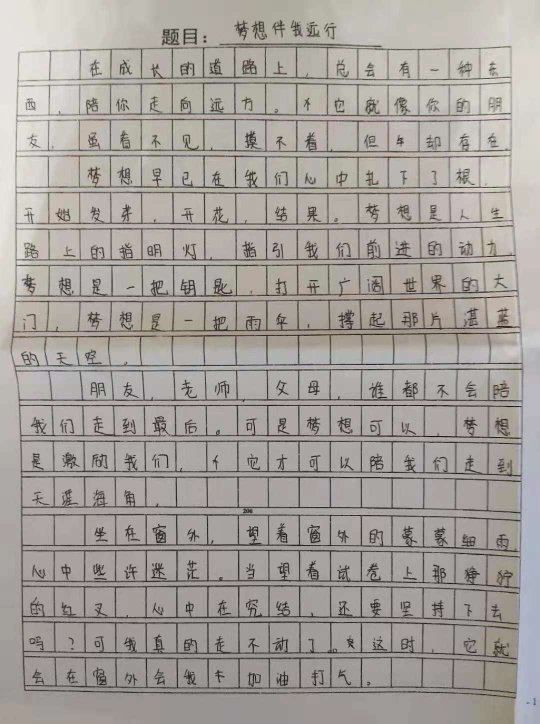 题目：梦想伴我远行
在成长的道路上，总会有一种东
西，陪你走向远方。它就像你的朋
友，虽看不见，摸不着，但却存在。
梦想早已在我们心中扎下了根，
开始发芽，开花，结果。梦想是人生
路上的指明灯，指引我们前进的动力，
梦想是一把钥匙，打开广阔世界的大
门，梦想是一把雨伞，撑起那片湛蓝
的天空。
朋友，老师，父母，谁都不会陪
我们走到最后。可是梦想可以，梦想
是激励我们，它才可以陪我们走到
天涯海角。
200
坐在窗外，望着窗外的蒙蒙细雨，
心中些许迷茫。当望着试卷上那狰狞
的红叉，心中在究结，还要坚持下去
吗？可我真的走不动了。这时，它就
会在窗外会我卡加油打气。
- 1